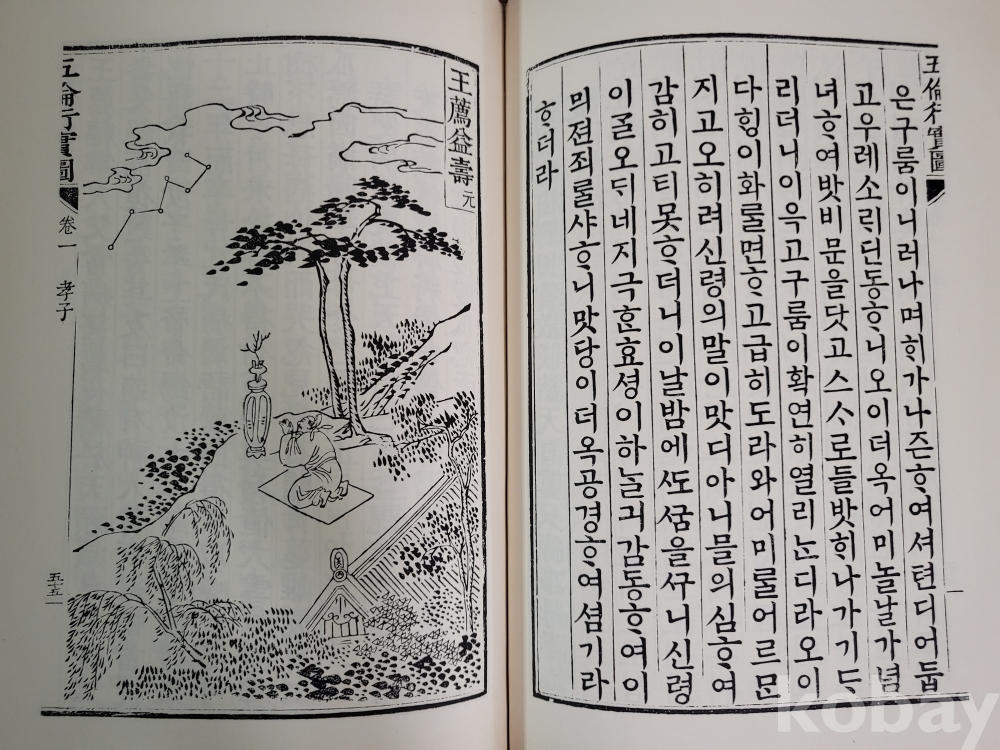 五倫行實圖
은구룸이니러나며ᄒᆡ가나즌ᄒᆞ여셔텬디어둡
고우레소ᄅᆡ딘동ᄒᆞ니오이더옥어미놀날가념
녀ᄒᆞ여밧비문을닷고스ᄉᆞ로들밧ᄒᆡ나가기ᄃᆞ
리더니이윽고구룸이확연히열리ᄂᆞᆫ디라오이
다ᄒᆡᆼ이화ᄅᆞᆯ면ᄒᆞ고급히도라와어미ᄅᆞᆯ어르ᄆᆞᆫ
지고오히려신령의말이맛디아니믈의심ᄒᆞ여
감히고티못ᄒᆞ더니이날밤에ᄯᅩᄭᅮᆷ을ᄭᅮ니신령
이ᄀᆞᆯ오ᄃᆡ네지극ᄒᆞᆫ효셩이하ᄂᆞᆯᄭᅴ감동ᄒᆞ여이
믜젼죄ᄅᆞᆯ샤ᄒᆞ니맛당이더옥공경ᄒᆞ여셤기라
ᄒᆞ더라
王薦益壽 元
五倫行實圖 卷一 孝子
kobay